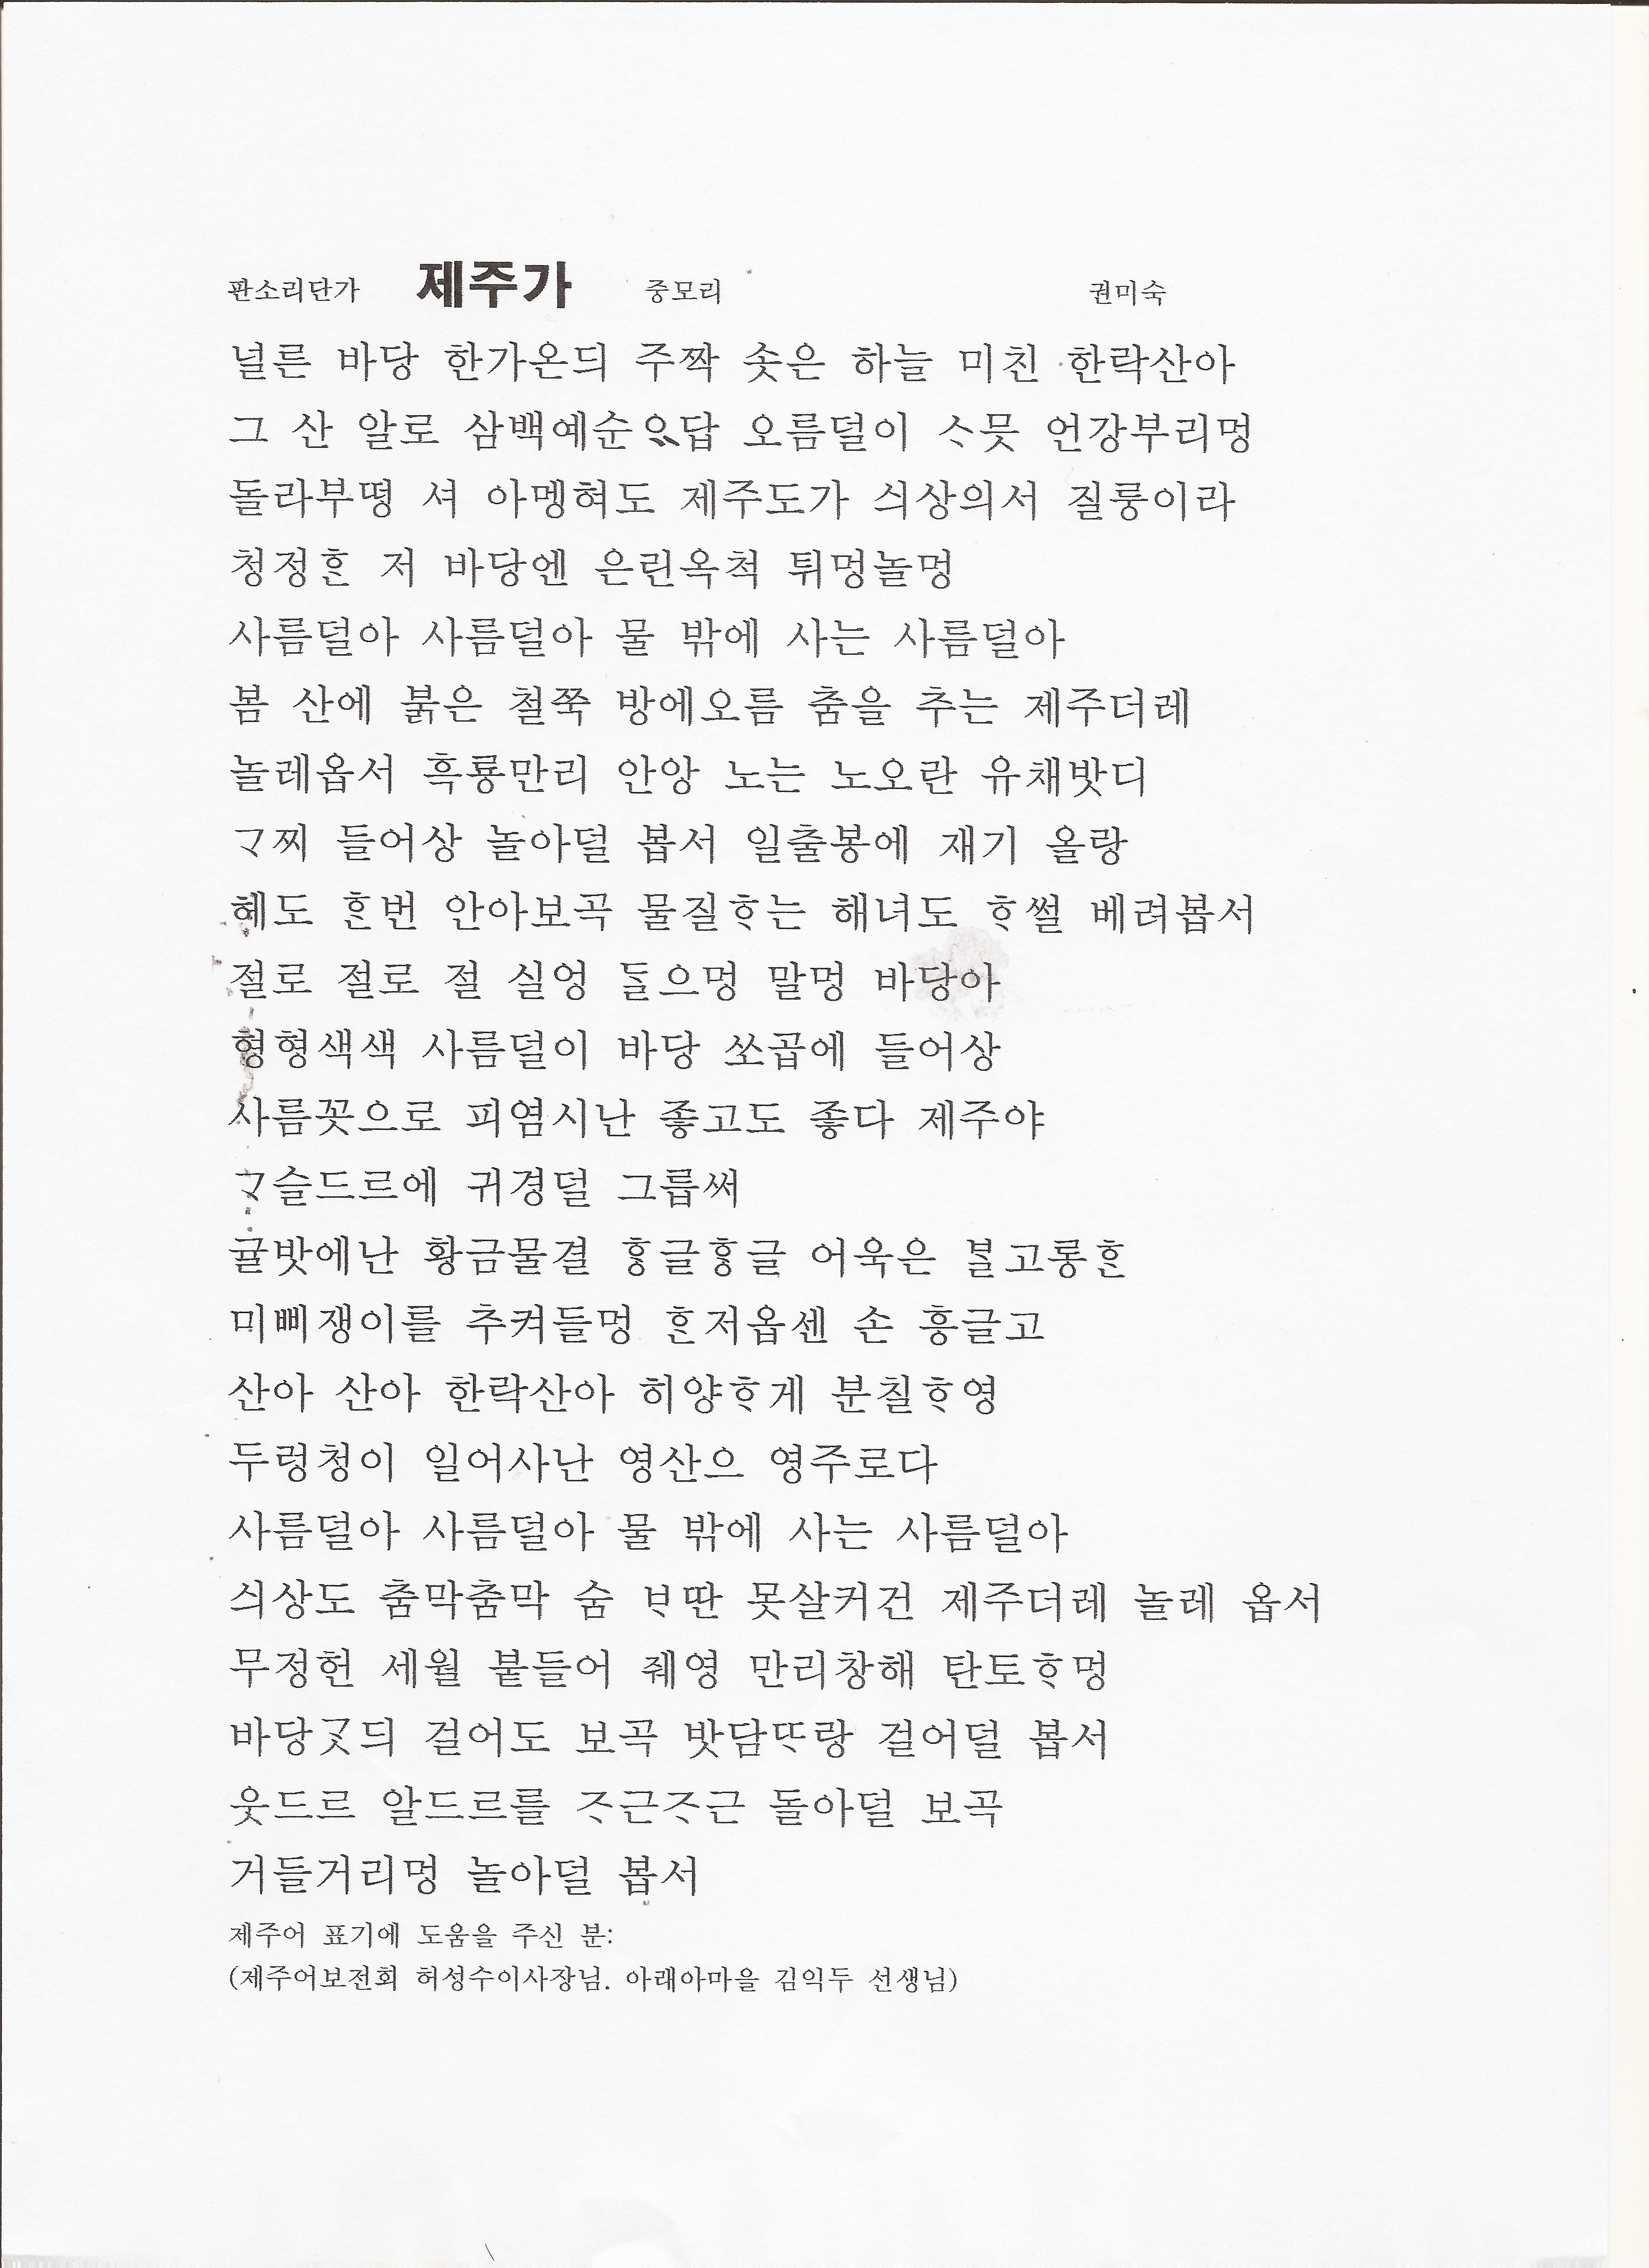 판소리단가 제주가 중모리 권미숙
널른 바당 한가온듸 주짝 솟은 하늘 미친 한락산아
그 산 알로 삼백예순ᄋᆢ답 오름덜이 ᄉᆞ뭇 언강부리멍
돌라부떵 셔 아멩혀도 제주도가 싀상의서 질룽이라
청정ᄒᆞᆫ 저 바당엔 은린옥척 튀멍놀멍
사름덜아 사름덜아 물 밖에 사는 사름덜아
봄 산에 붉은 철쭉 방에오름 춤을 추는 제주더레
놀레옵서 흑룡만리 안앙 노는 노오란 유채밧디
ᄀᆞ찌 들어상 놀아덜 봅서 일출봉에 재기 올랑
헤도 ᄒᆞᆫ번 안아보곡 물질ᄒᆞ는 해녀도 ᄒᆞ썰 베려봅서
절로 절로 절 실엉 ᄃᆞᆯ으멍 말멍 바당아
형형색색 사름덜이 바당 쏘곱에 들어상
사름꼿으로 피염시난 좋고도 좋다 제주야
ᄀᆞ슬드르에 귀경덜 그릅써
귤밧에난 황금물결 ᄒᆞᆼ글ᄒᆞᆼ글 어욱은 ᄇᆞᆯ고롱ᄒᆞᆫ
미삐쟁이를 추켜들멍 ᄒᆞᆫ저옵센 손 흥글고
산아 산아 한락산아 히양ᄒᆞ게 분칠ᄒᆞ영
두렁청이 일어사난 영산으 영주로다
사름덜아 사름덜아 물 밖에 사는 사름덜아
싀상도 춤막춤막 숨 ᄇᆞ딴 못살커건 제주더레 놀레 옵서
무정헌 세월 붙들어 줴영 만리창해 탄토ᄒᆞ멍
바당ᄀᆞᆺ듸 걸어도 보곡 밧담ᄄᆞ랑 걸어덜 봅서
웃드르 알드르를 ᄌᆞ근ᄌᆞ근 돌아덜 보곡
거들거리멍 놀아덜 봅서
제주어 표기에 도움을 주신 분:
(제주어보전회 허성수이사장님. 아래아마을 김익두 선생님)